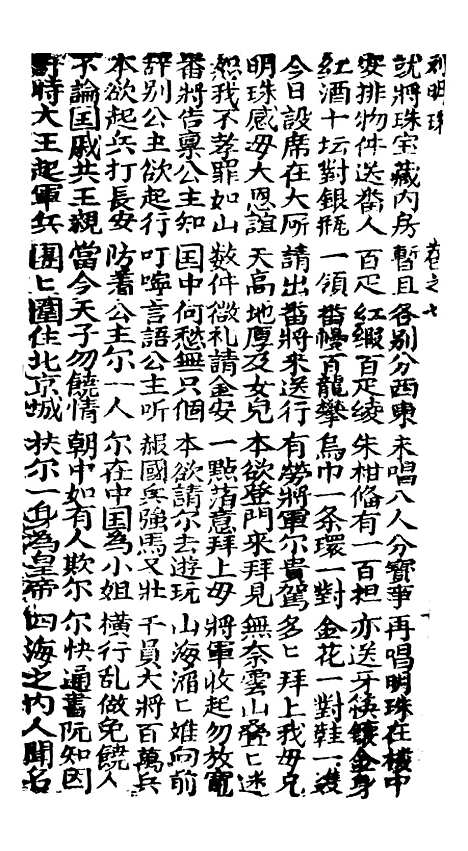 刘明珠 卷之七
就將珠宝藏内房 暫且各别分西東 未唱八人分寶事 再唱明珠在樓中
安排物件送畨人 百疋紅緞百疋綾 朱柑俻有一百担 亦送牙筷鑲金身
紅酒十坛對銀瓶 一領畨幔百龍攀 烏巾一条環一對 金花一對鞋一䨇
今日設席在大所 請出畨將來送行 有勞將軍尔貴駕 多匕拜上我母兄
明珠感母大恩誼 天高地厚及女兒 本欲登門来拜見 無奈雲山叠匕迷
恕我不孝罪如山 数件微礼請金安 一點萡意拜上母 將軍收起勿放寛
畨將告禀公主知 国中何愁無只個 本欲請尔去遊玩 山海湎匕难向前
辞别公主欲起行 叮嚀言語公主听 報國兵強馬又壮 千員大將百萬兵
本欲起兵打長安 防着公主尔一人 尔在中国為小姐 横行乱做免饒人
不論国戚共王親 當今天子勿饒情 朝中如有人欺尔 尔快通書阮知因
許時大王起軍兵 團匕圍住北京城 扶尔一身為皇帝 四海之内人聞名